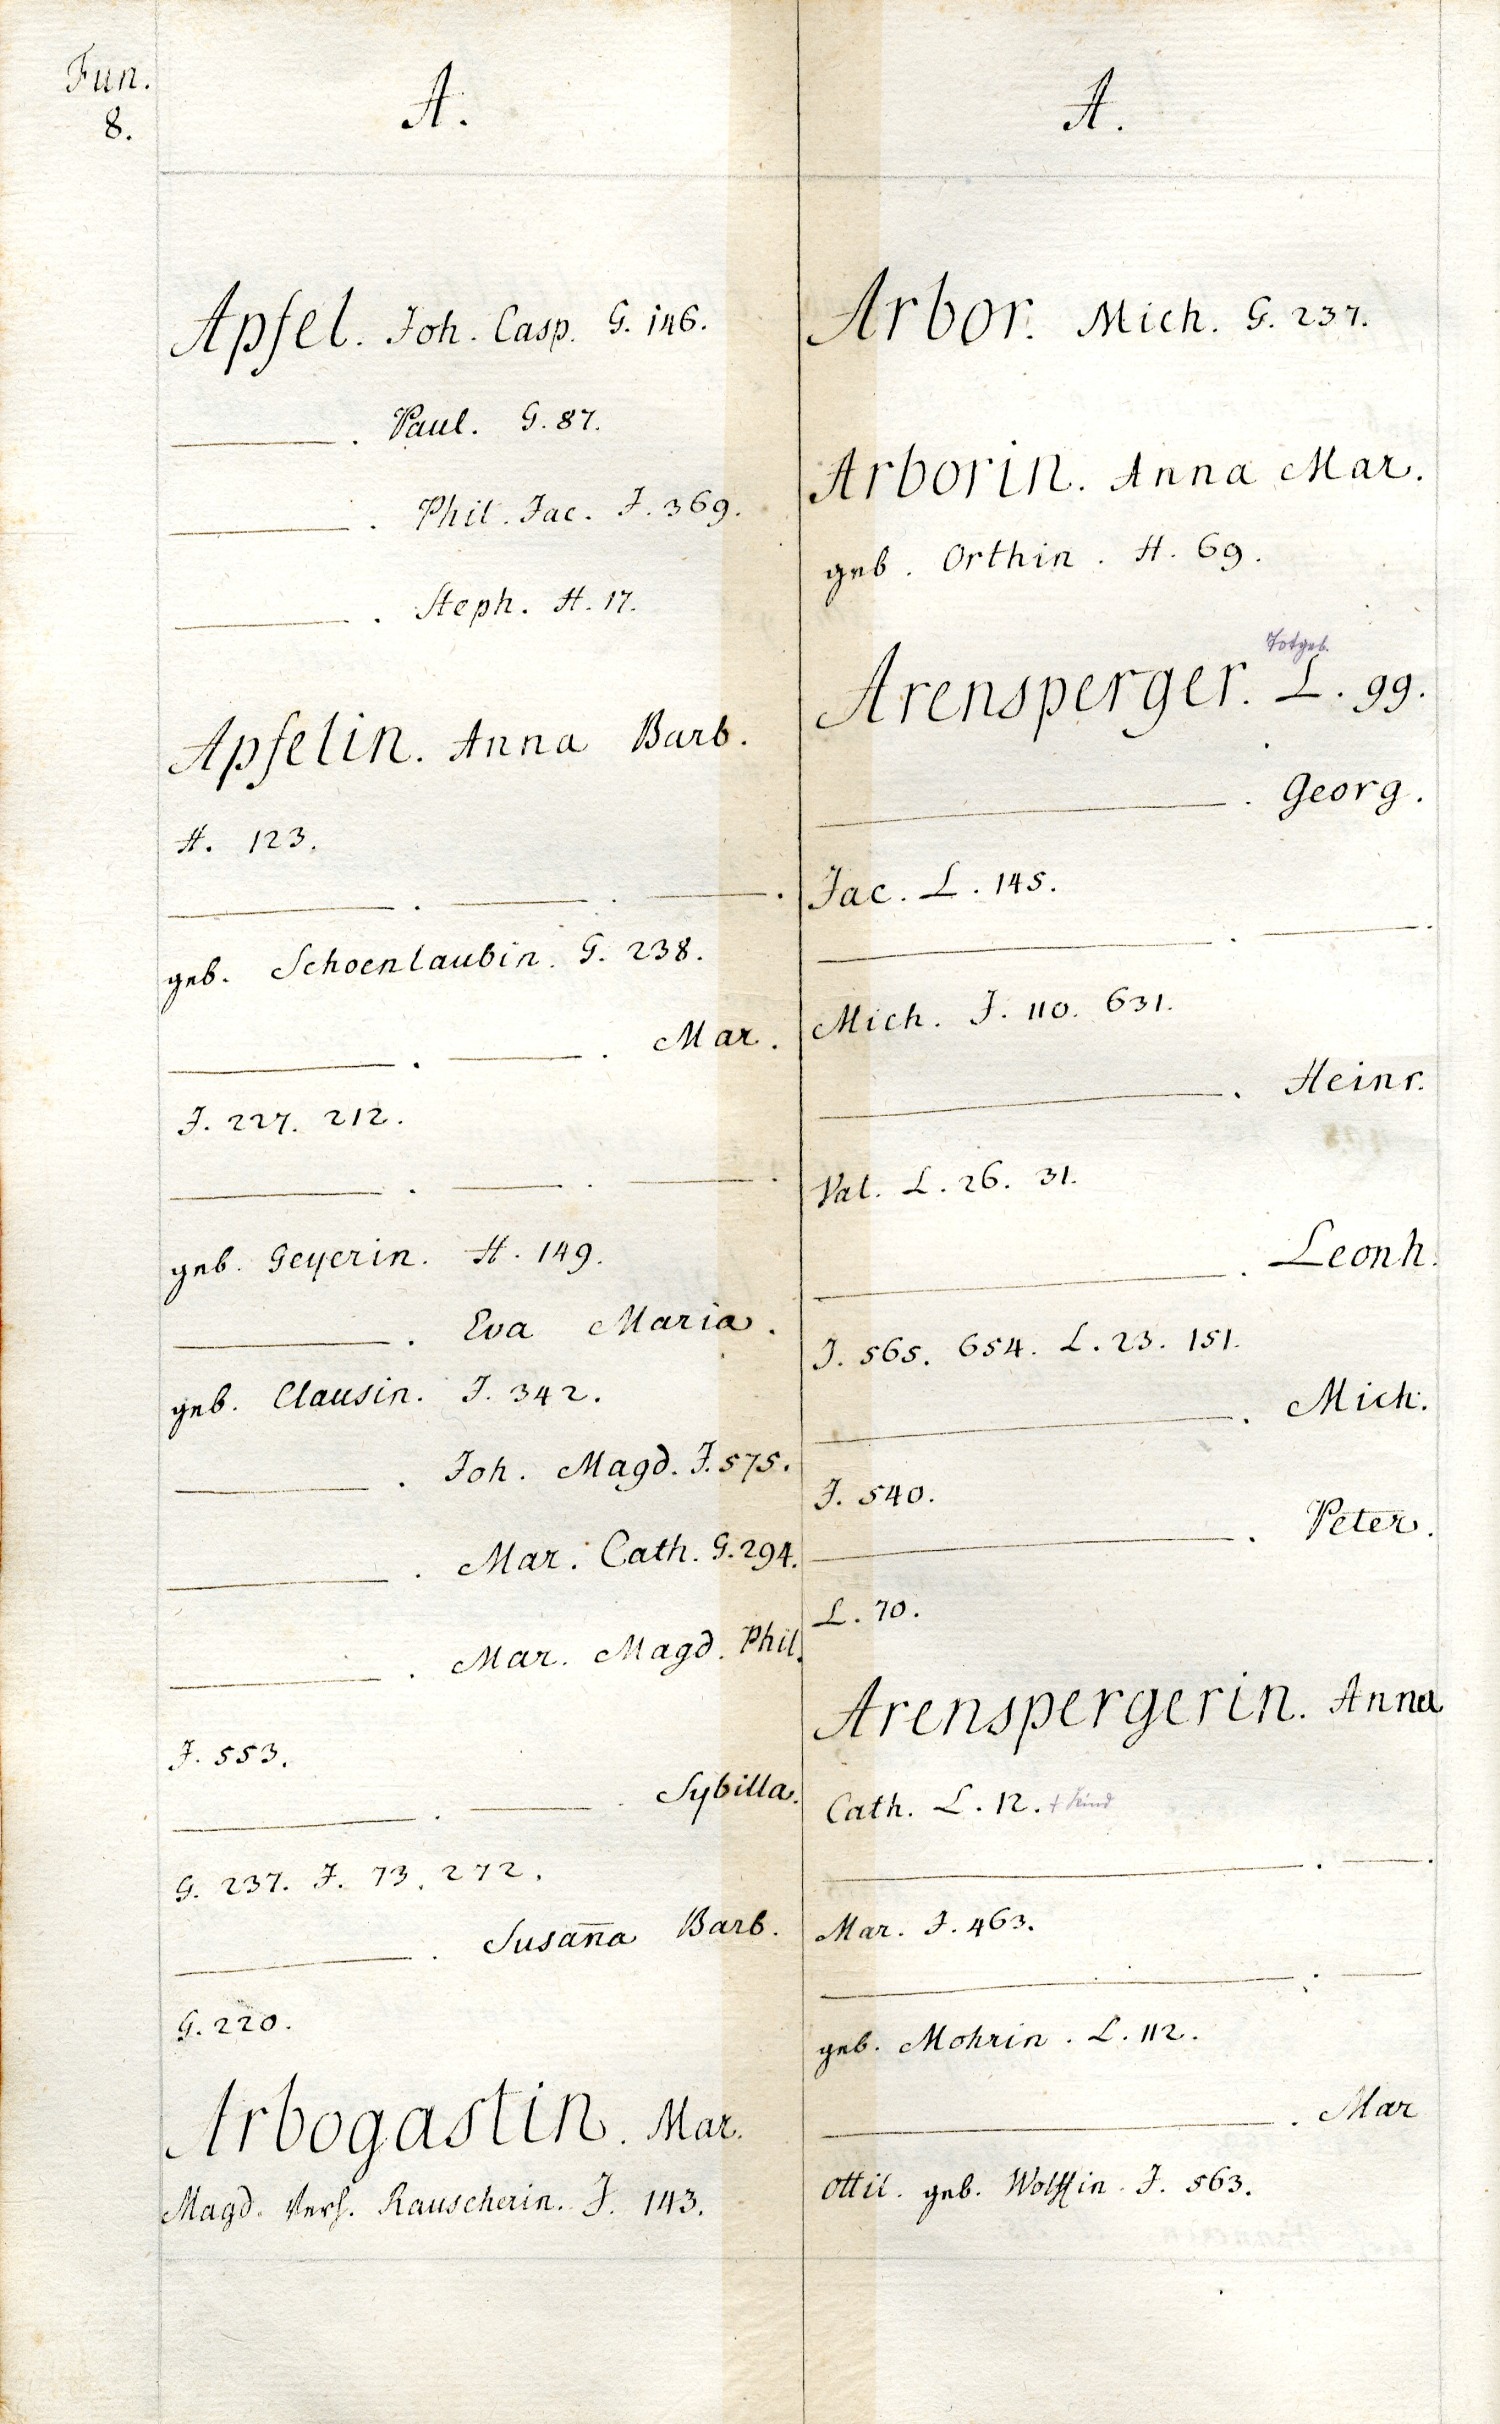 Fun.
8.
A.
Apfel. Joh. Casp. G. 146.
———. Paul. G. 87.
———. Phil. Jac. J. 369.
———. Steph. H. 17.
Apfelin. Anna Barb.
H. 123.
———. ———. ———.
geb. Schoenlaubin. G. 238.
———. ———. Mar.
J. 227. 212.
———. ———. ———.
geb. Geyerin. H. 149.
———. Eva Maria.
geb. Clausin. J. 342.
———. Joh. Magd. J. 575.
———. Mar. Cath. G. 294.
———. Mar. Magd. Phil.
J. 553.
———. ———. Sybilla.
G. 237. J. 73. 272.
———. Susan̄a Barb.
G. 220.
Arbogastin. Mar.
Magd. Verh. Rauscherin. J. 143.
A.
Arbor. Mich. G. 237.
Arborin. Anna Mar.
geb. Orthin. H. 69.
Totgeb.
Arensperger. L. 99.
———. Georg.
Jac. L. 145.
———. ———.
Mich. J. 110. 631.
———. Heinr.
Val. L. 26. 31.
———. Leonh.
J. 565. 654. L. 23. 151.
———. Mich.
J. 540.
———. Peter.
L. 70.
Arenspergerin. Anna
Cath. L. 12. + Kind
———. ———.
Mar. J. 463.
———. ———
geb. Mohrin. L. 112.
———. Mar
Ottil. geb. Wolffin. J. 563.